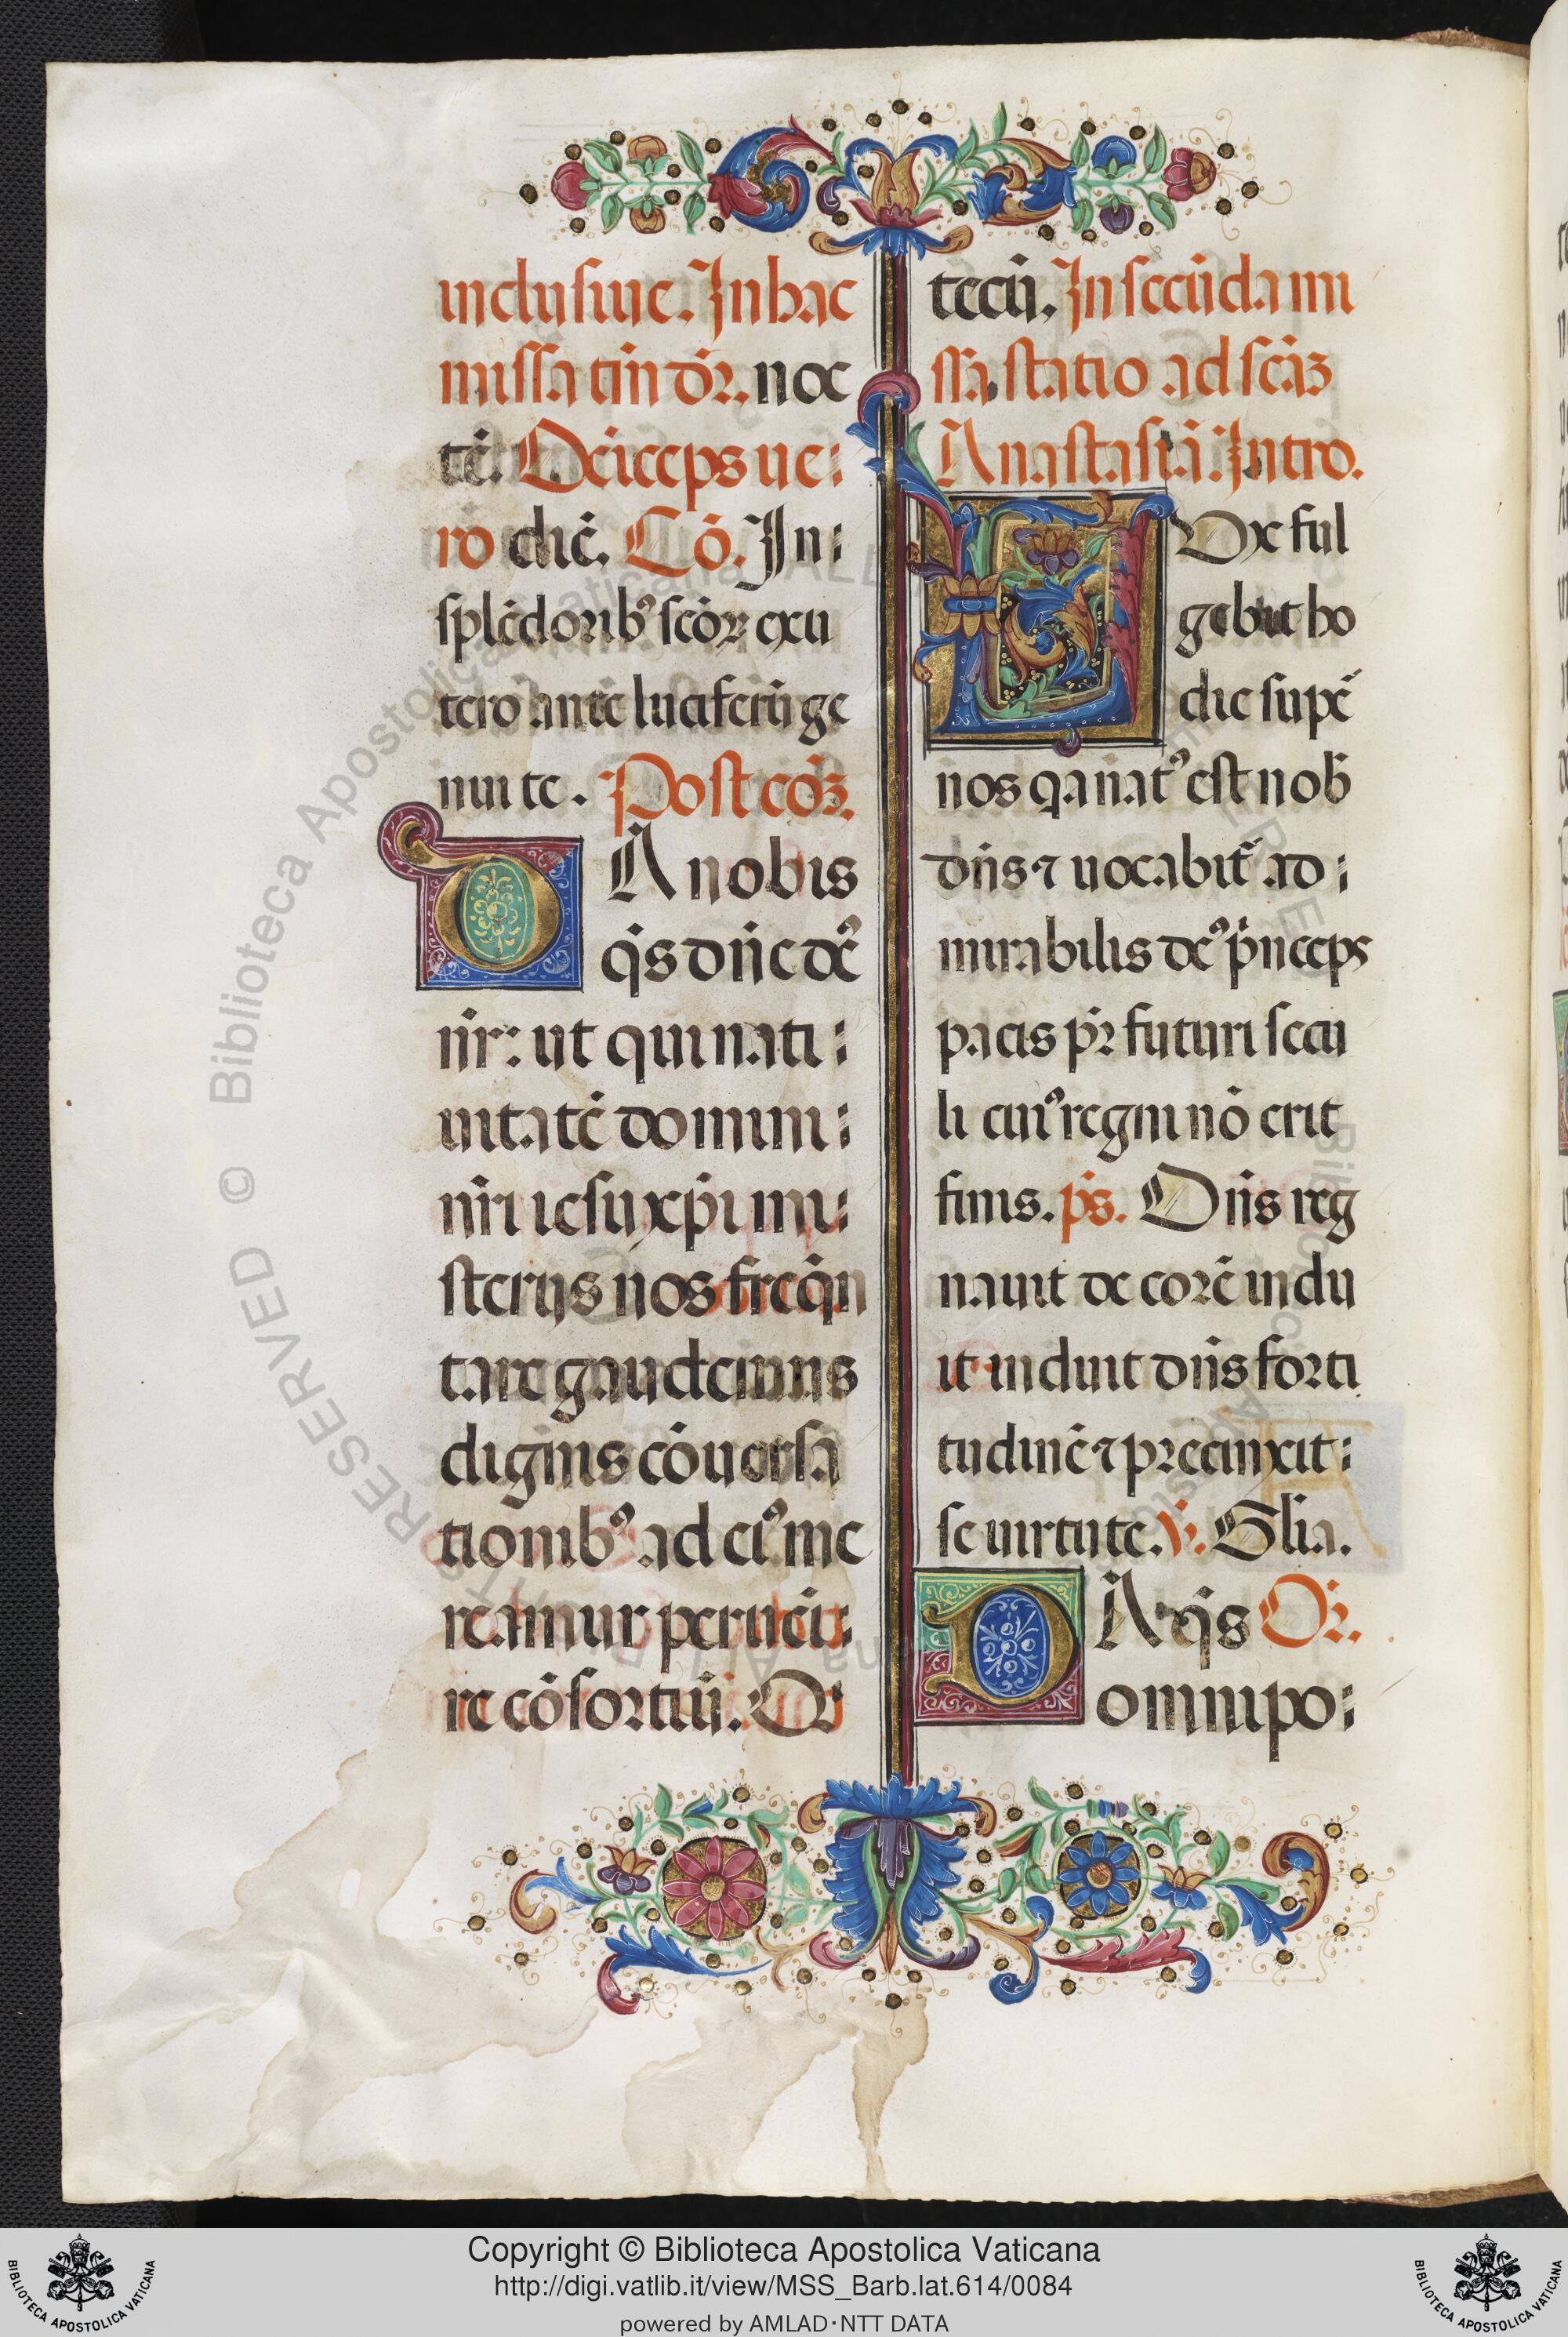 inclusiue. In hac
missa tñ dr̃. noc
tẽ. Dẽiceps ue:
ro dic̃. Cõ. In:
splẽdoribꝰ sc̃oꝝ ex u
tero ante luciferũ ge
nui te. Post cõꝫ.
DA nobis
q̃s dñe dẽ
nr̃: ut qui nati:
uitatẽ domini:
nr̃i iesu xp̃i my:
sterijs nos freq̃n
tare gaudemus
dignis cõuersa
tionibꝰ ad eiꝰ me
reamur peruẽi:
re cõsortiũ. Q
tecũ. In secũda mi
ssa, statio ad sc̃aꝫ
Anastasiã. Intro.
LUx ful
gebit ho
die sup̃
nos qa natꝰ est nob̃
dñs ⁊ uocabit̃ ad:
mirabilis deꝰ p̃nceps
pacis pr̃ futuri secu
li cuiꝰ regni nõ erit
finis. ps. Dñs reg
nauit decorẽ indu
it induit dñs forti
tudinẽ ⁊ precinxit:
se uirtute. ℣. Glia.
DA q̃s Or̃.
omnipo:
© Biblioteca Apostolica Vaticana
RESERVED
Copyright © Biblioteca Apostolica Vaticana
http://digi.vatlib.it/view/MSS_Barb.lat.614/0084
powered by AMLAD·NTT DATA
BIBLIOTECA APOSTOLICA VATICANA
BIBLIOTECA APOSTOLICA VATICANA